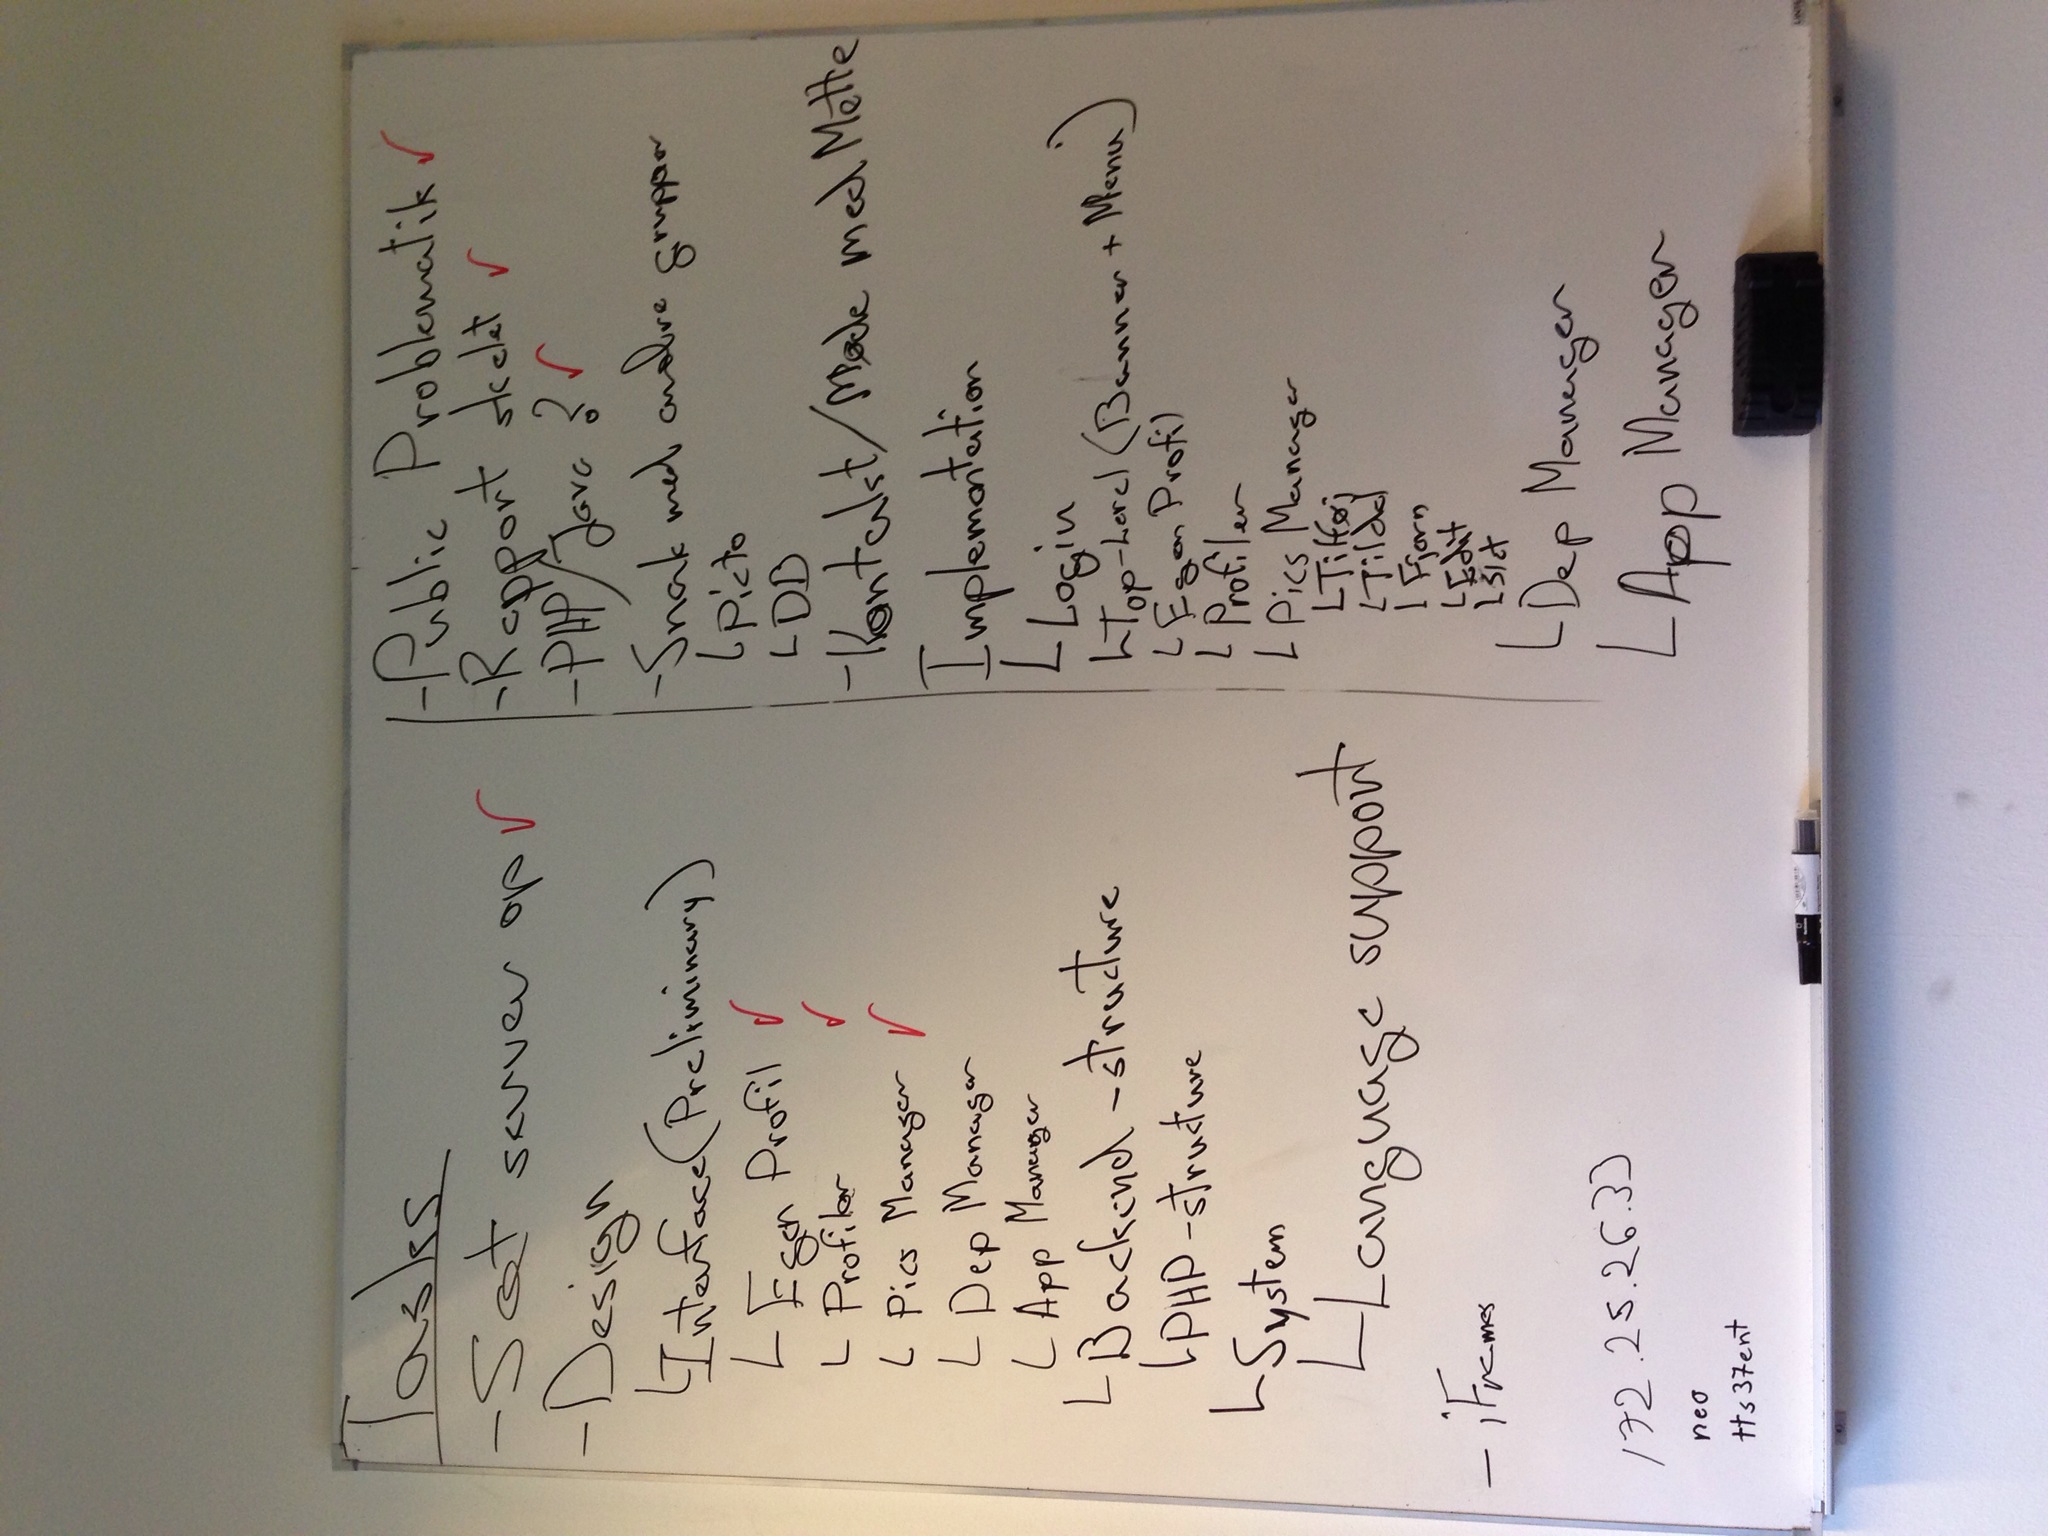 Tasks
- Sæt server op ✓
- Design
└ Interface (Preliminary)
└ Egen Profil ✓
└ Profiler ✓
└ Pics Manager ✓
└ Dep Manager
└ App Manager
└ Backend-structure
└ PHP-structure
└ System
└ Language support
- iFrames
172.25.26.33
neo
tts37ent
- Public Problematik ✓
- Rapport skelet ✓
- PHP/Java? ✓
- Snak med andre grupper
└ Picto
└ DB
- Kontakt/Møde med Mette
Implementation
└ Login
└ Top-Level (Banner + Menu)
└ Egen Profil
└ Profiler
└ Pics Manager
└ Tilføj
└ Tildel
└ Fjern
└ Edit
└ Slet
└ Dep Manager
└ App Manager